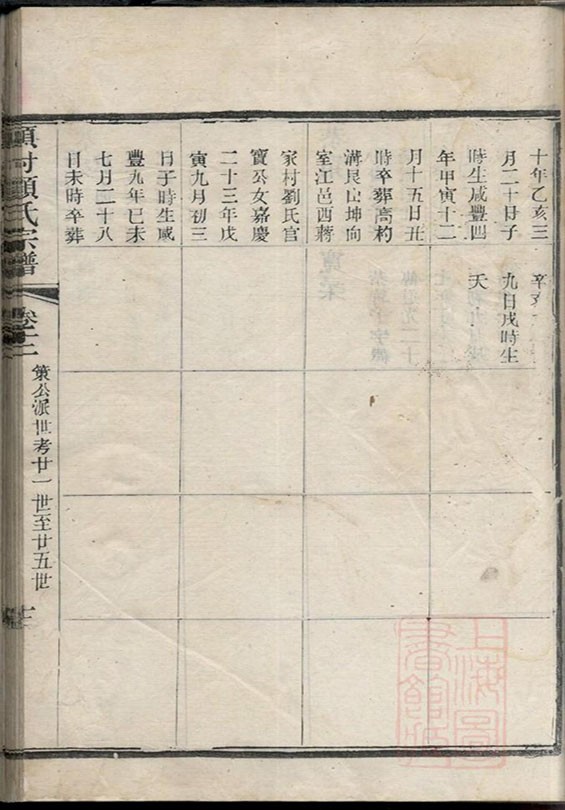 十年乙亥三
月二十日子
時生咸豐四
年甲寅十二
月十五日丑
時卒葬高杓
溝艮山坤向
室江邑西蔣
家村劉氏官
寶公女嘉慶
二十三年戊
寅九月初三
日子時生咸
豐九年己未
七月二十八
日未時卒葬
辛亥
九日戌時生
天
村顧氏宗譜
卷十二
策公派世考廿一世至廿五世
上海圖書館藏